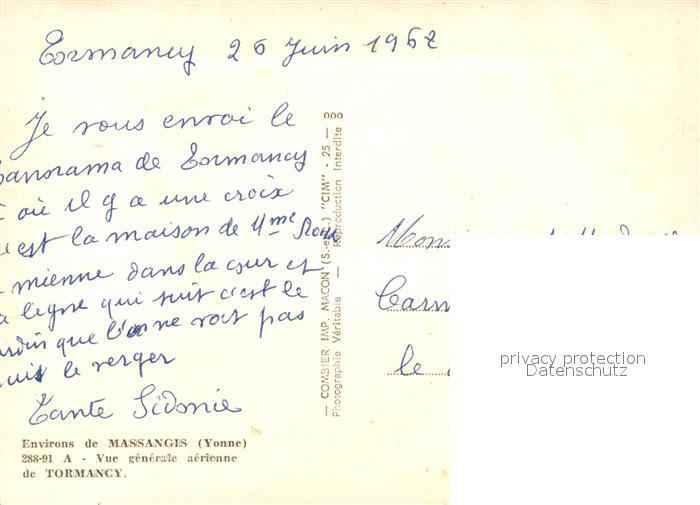 Tormancy 26 Juin 1962
Je vous envoi le
panorama de Tormancy
où il y a une croix
est la maison de Mme Roux
mienne dans la cour et
la ligne qui suit c'est le
jardin que l'on ne voit pas
puis le verger
Tante Sidonie
Environs de MASSANGIS (Yonne)
288-91 A - Vue générale aérienne
de TORMANCY.
— COMBIER IMP. MACON (S.-et-L.) "CIM" - 25 — 000
Photographie Véritable — Reproduction Interdite
le
privacy protection
Datenschutz